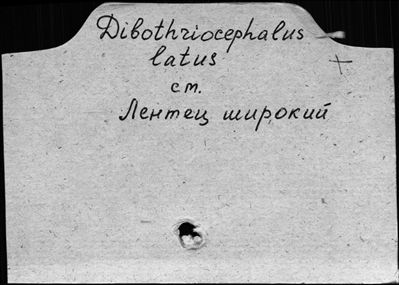 Dibothriocephalus
latus
+
ст.
Лентец широкий